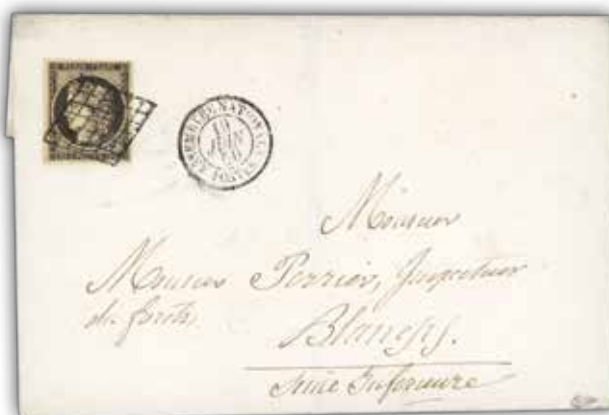 ASSEMBLEE NATIONALE
JUIN
POSTES
Monsieur
Monsieur Perrier, Inspecteur
de forêts,
Blangy.
Seine Inferieure